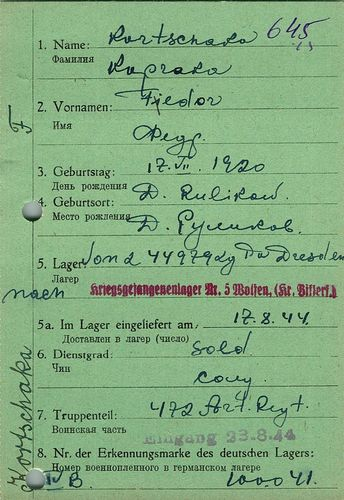 645
1. Name: Kortschaka
Фамилия
2. Vornamen: Fiedor
Имя
Федр.
3. Geburtstag: 17. VII. 1920
День рождения
4. Geburtsort: D. Rulikow.
Место рождения Д. Руликов.
5. Lager: 449792y Dresden
Лагерь
nach Kriegsgefangenenlager Nr. 5 Wolfen, (Kr. Bitterf.)
5a. Im Lager eingeliefert am, 17.8.44.
Доставлен в лагерь (число)
6. Dienstgrad: Sold
Чин
7. Truppenteil: 472 Art. Regt.
Воинская часть
Eingang 23.8.44
8. Nr. der Erkennungsmarke des deutschen Lagers:
Номер военнопленного в германском лагере
IV B. 100041.
F
Kortschaka